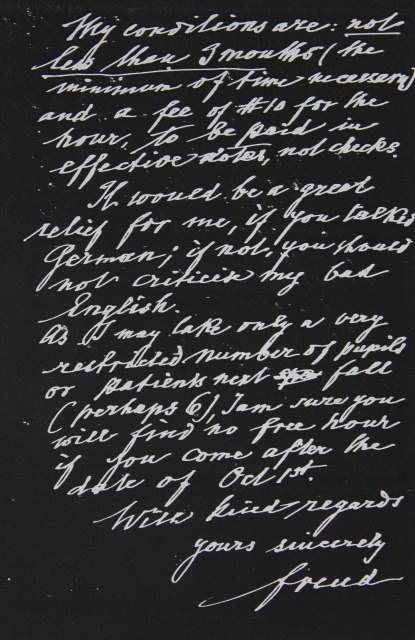 My conditions are: not
less than 3 months (the
minimum of time necessary)
and a fee of $10 for the
hour, to be paid in
effective notes, not checks.
It would be a great
relief for me, if you talked
German; if not, you should
not criticise my bad
English.
As I may take only a very
restricted number of pupils
or patients next fall
(perhaps 6), I am sure you
will find no free hour
if you come after the
date of Oct 1st.
With kind regards
yours sincerely
Freud